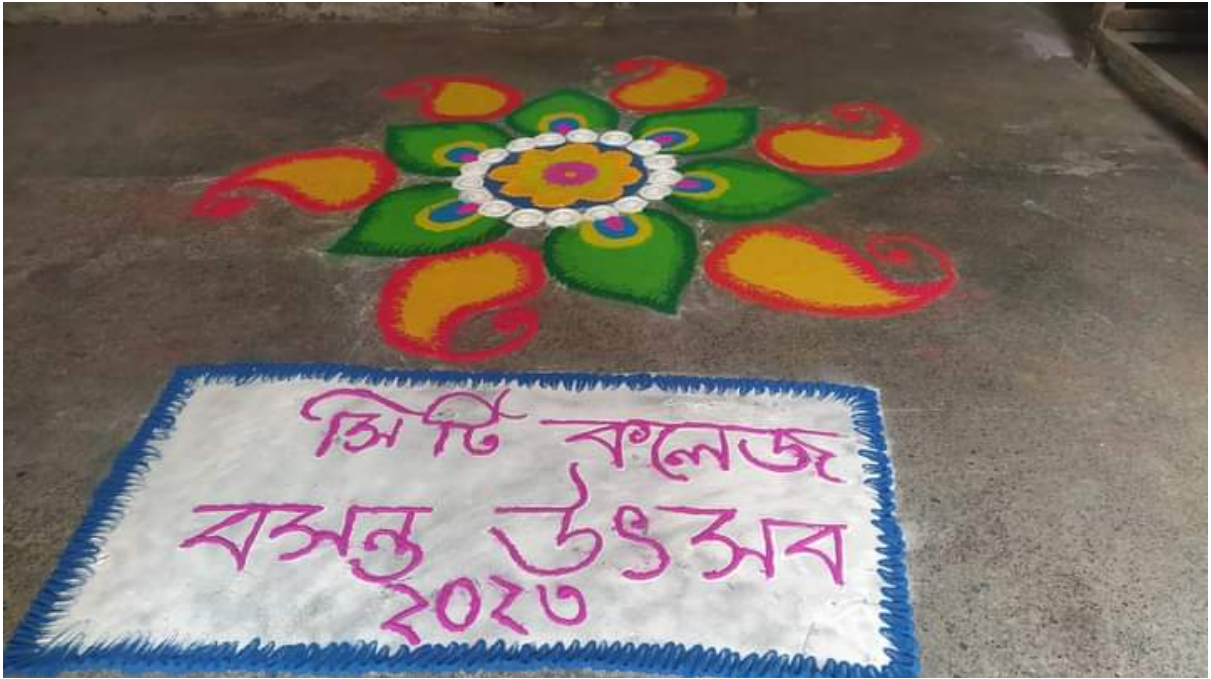 সিটি কলেজ
বসন্ত উৎসব
২০২৩